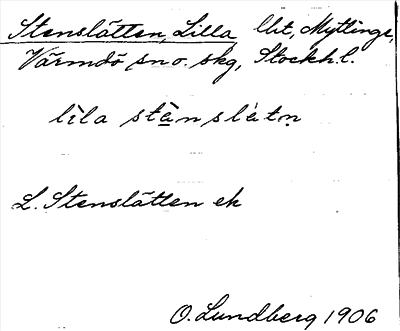 Stenslätten, Lilla, lht, Myttinge,
Värmdö sn o. skg, Stockh. l.
lìla stànslátn̥
L. Stenslätten ek
O. Lundberg 1906